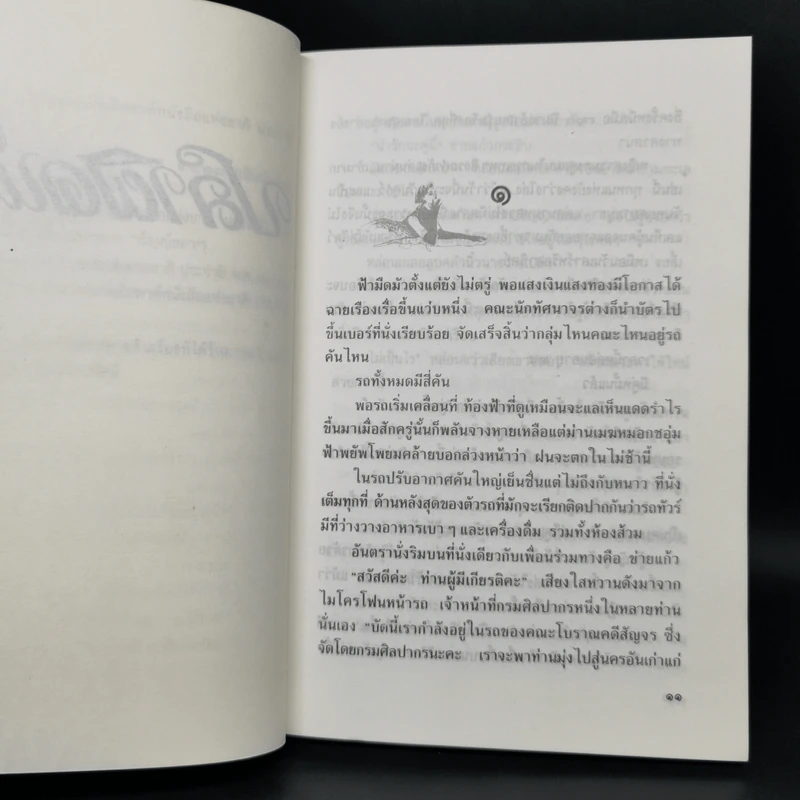 ๑
ฟ้ามืดมัวตั้งแต่ยังไม่ตรู่ พอแสงเงินแสงทองมีโอกาสได้
ฉายเรืองเรื่อขึ้นแว่บหนึ่ง คณะนักทัศนาจรต่างก็นำบัตรไป
ขึ้นเบอร์ที่นั่งเรียบร้อย จัดเสร็จสิ้นว่ากลุ่มไหนคณะไหนอยู่รถ
คันไหน
รถทั้งหมดมีสี่คัน
พอรถเริ่มเคลื่อนที่ ท้องฟ้าที่ดูเหมือนจะแลเห็นแดดรำไร
ขึ้นมาเมื่อสักครู่นั้นก็พลันจางหายเหลือแต่ม่านเมฆหมอกชอุ่ม
ฟ้าพยัพโพยมคล้ายบอกล่วงหน้าว่า ฝนจะตกในไม่ช้านี้
ในรถปรับอากาศคันใหญ่เย็นชื่นแต่ไม่ถึงกับหนาว ที่นั่ง
เต็มทุกที่ ด้านหลังสุดของตัวรถที่มักจะเรียกติดปากกันว่ารถทัวร์
มีที่ว่างวางอาหารเบา ๆ และเครื่องดื่ม รวมทั้งห้องส้วม
อันตรานั่งริมบนที่นั่งเดียวกับเพื่อนร่วมทางคือ ข่ายแก้ว
"สวัสดีค่ะ ท่านผู้มีเกียรติคะ" เสียงใสหวานดังมาจาก
ไมโครโฟนหน้ารถ เจ้าหน้าที่กรมศิลปากรหนึ่งในหลายท่าน
นั่นเอง "บัดนี้เรากำลังอยู่ในรถของคณะโบราณคดีสัญจร ซึ่ง
จัดโดยกรมศิลปากรนะคะ เราจะพาท่านมุ่งไปสู่นครอันเก่าแก่
๑๑